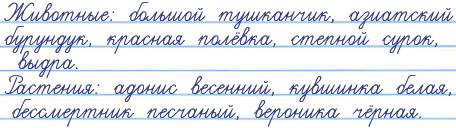 Животные: большой тушканчик, азиатский
бурундук, красная полёвка, степной сурок,
выдра.
Растения: адонис весенний, кувшинка белая,
бессмертник песчаный, вероника чёрная.